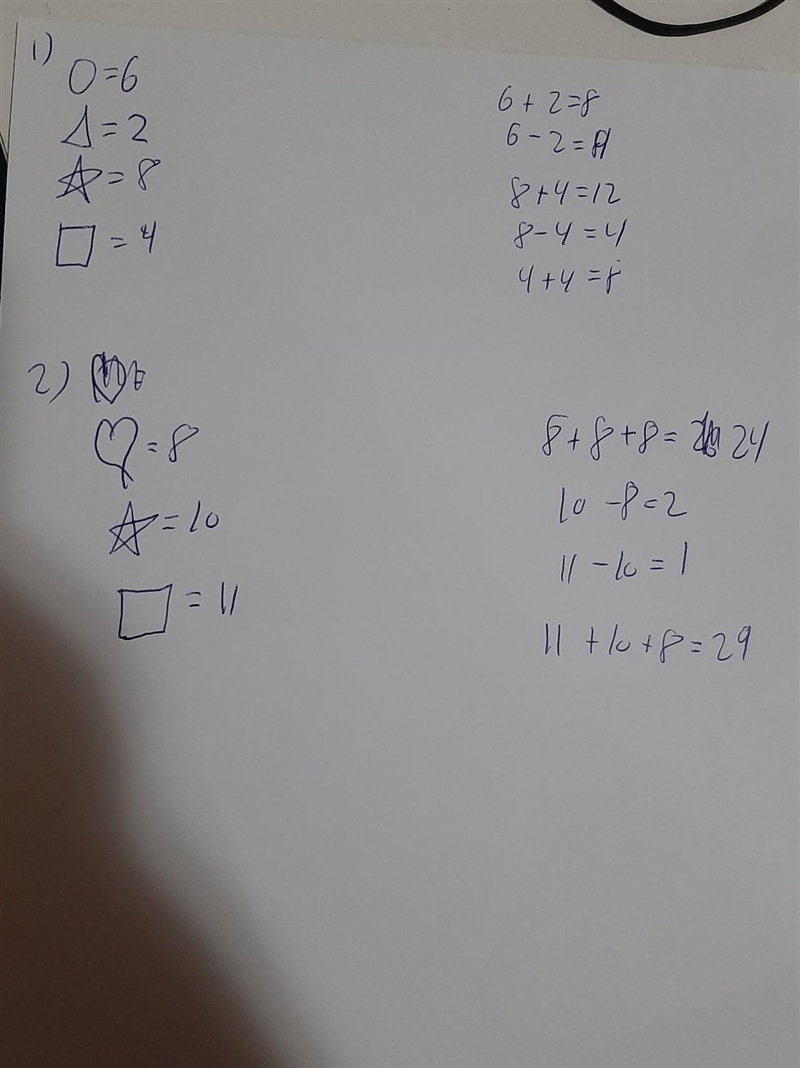 1)
○ = 6
△ = 2
☆ = 8
□ = 4
6 + 2 = 8
6 - 2 = 4
8 + 4 = 12
8 - 4 = 4
4 + 4 = 8
2)
♡ = 8
☆ = 10
□ = 11
8 + 8 + 8 = 24
10 - 8 = 2
11 - 10 = 1
11 + 10 + 8 = 29